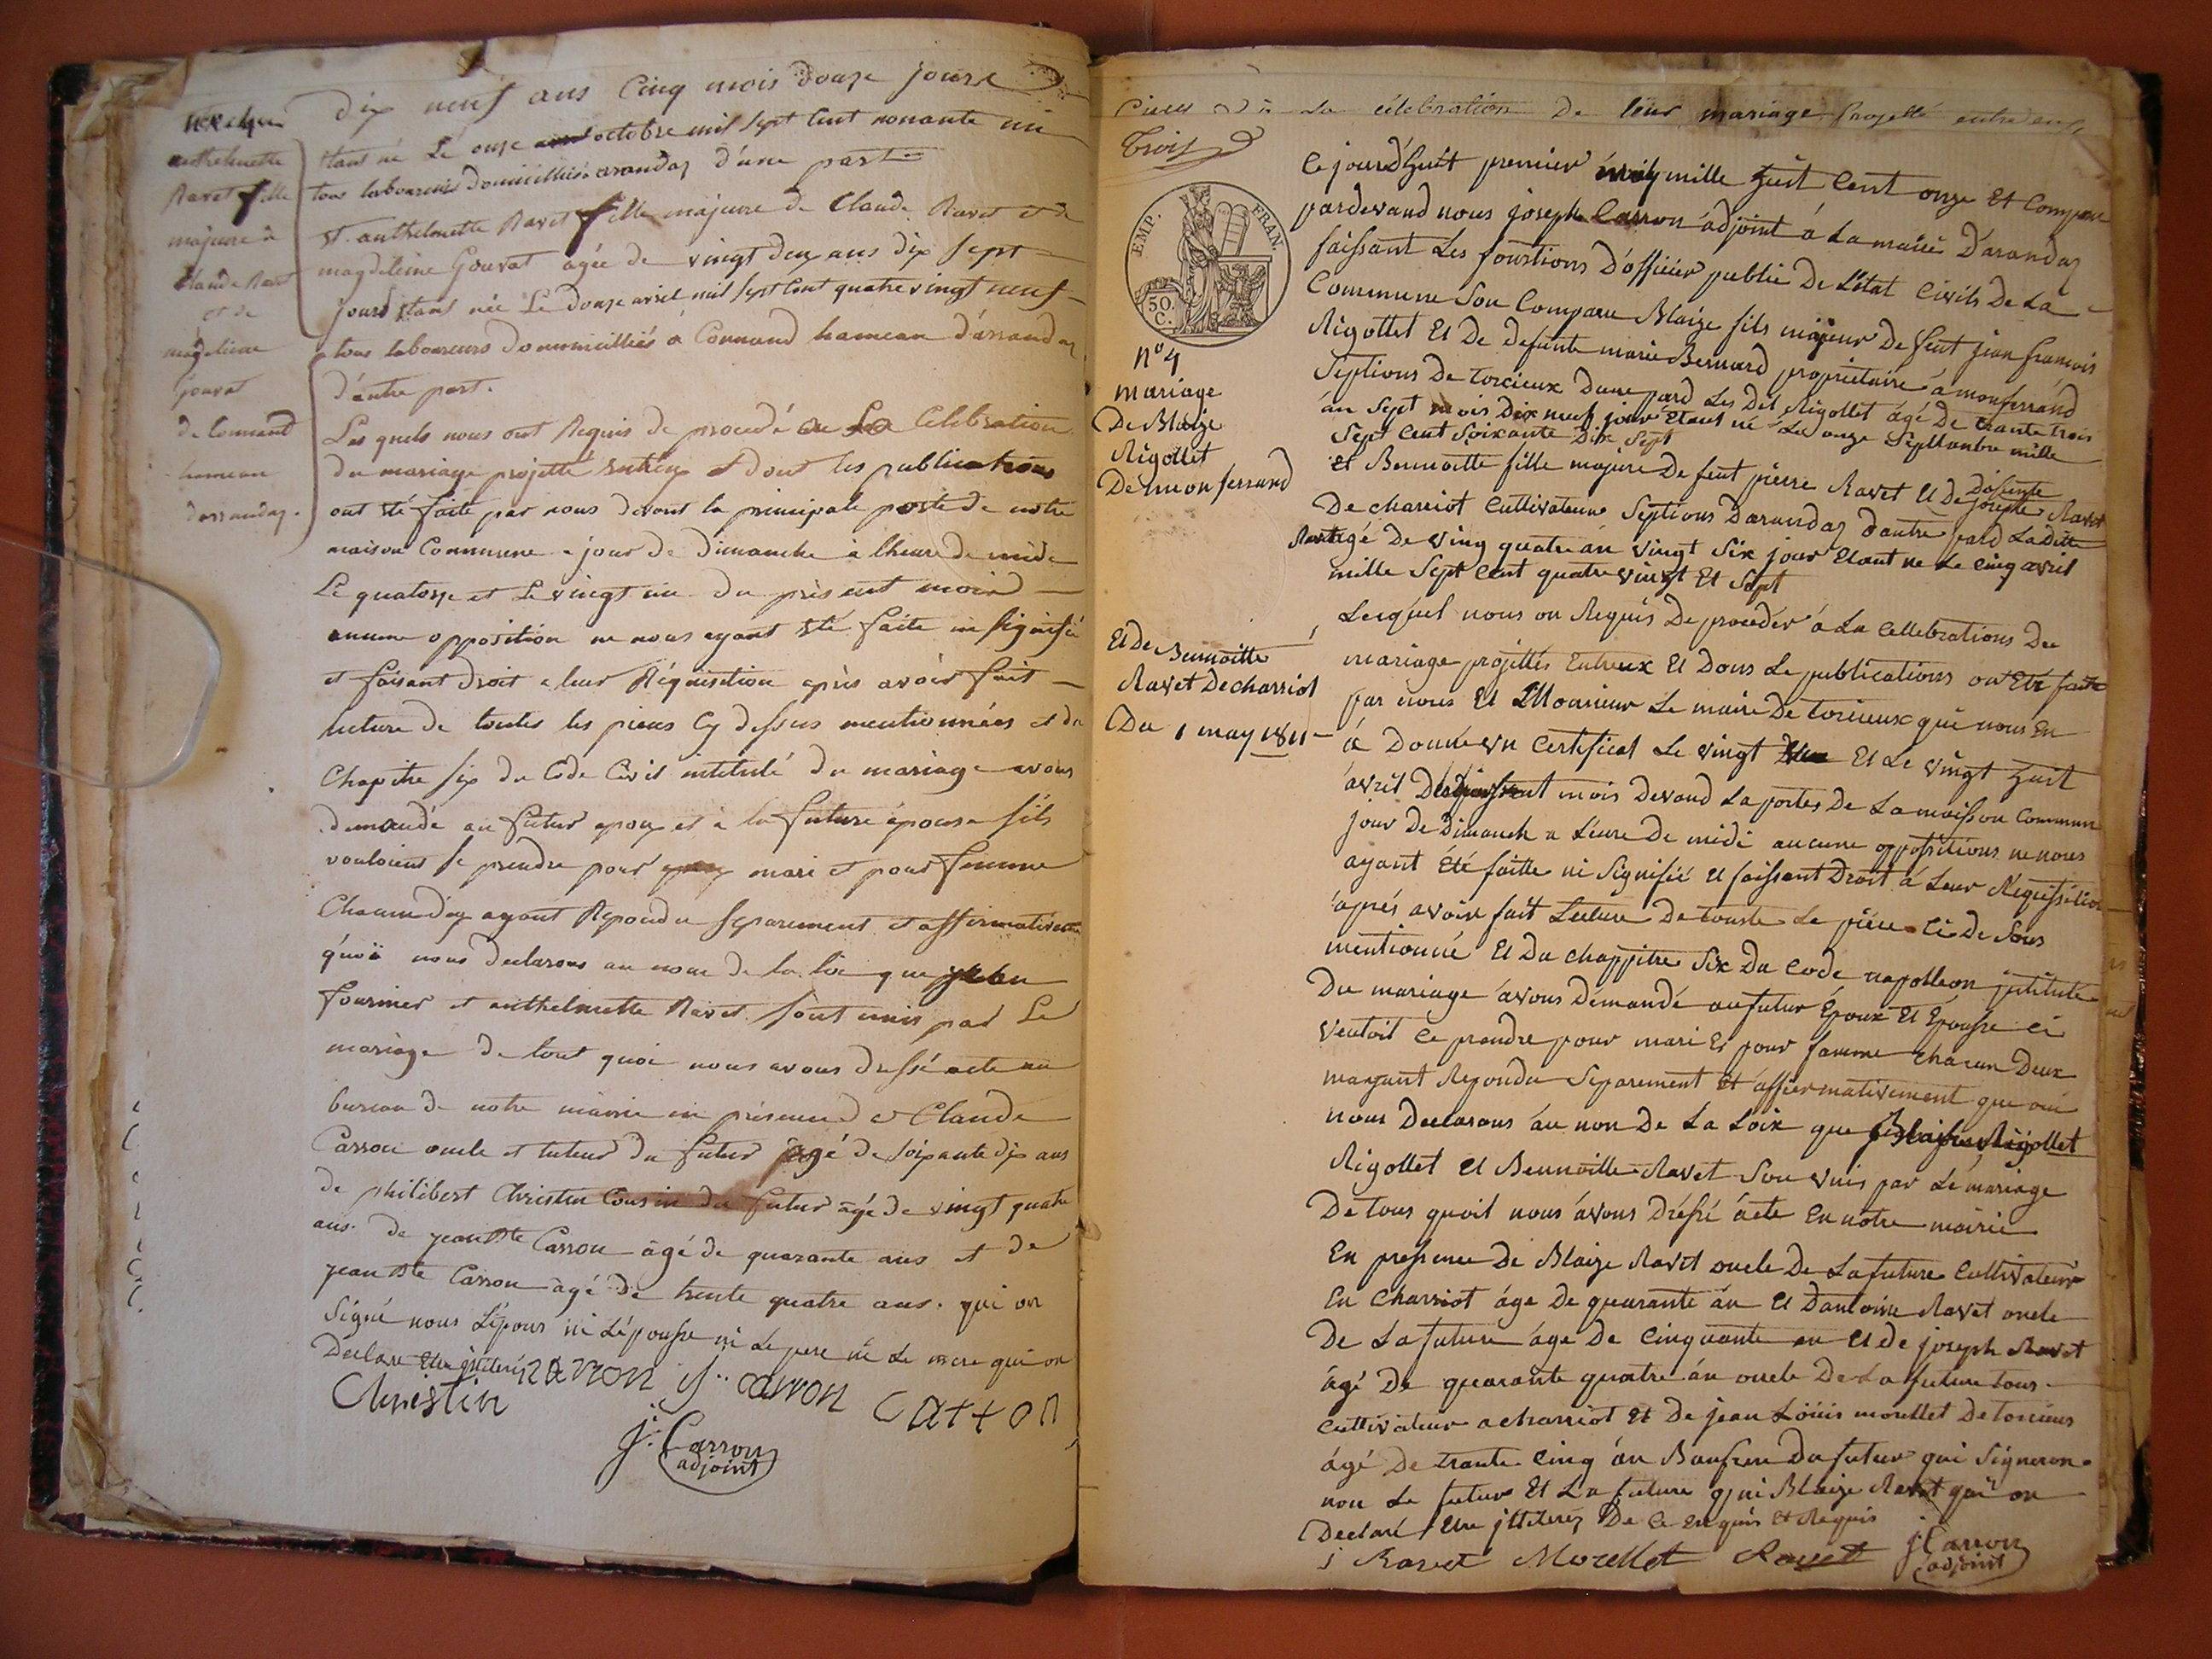 dix neuf ans Cinq mois douze jours
anthelmette
Ravet fille
majeure à
Claude Ravet
et de
magdeleine
jouvat
de Connand
hameau
darrandaz.
étant né Le onze octobre mil sept Cent nonante un
tous laboureurs domicilliés arandaz d'une part
et anthelmette Ravet fille majeure de Claude Ravet et de
magdeleine Gouvat agée de vingt deux ans dix sept
jours étant née Le douze avril mil sept Cent quatre vingt neuf
tous laboureurs dommicilliés à Connand hameau d'arrandaz
d'autre part.
Les quels nous ont Requis de procedé a La Celebration
du mariage projetté entreux et dont les publications
ont été faite par nous devant la principale porte de notre
maison Commune a jour de dimanche à lheure de midi
Le quatorze et Le vingt un du présent mois
aucune opposition ne nous ayant été faite ni signifié
et faisant droit a leur Réquisition après avoir fait
lecture de toutes les pieces Cy dessus mentionnées et du
Chapitre six du Code Civil intitulé du mariage avons
demandé au futur epoux et à la future épouse sils
vouloient se prendre pour mari et pour femme
Chacun d'eux ayant Repondu separement et affirmativement
qu'oui nous declarons au nom de la loi que
fournier et anthelmette Ravet sont unis par Le
mariage de tout quoi nous avons dressé acte au
bureau de notre mairie en présence de Claude
Carron oncle et tuteur du futur agé de soixante dix ans
de philibert Christin Cousin du futur âgé de vingt quatre
ans. de jean Bte Carron âgé de quarante ans et de
jean Bte Carron agé de trente quatre ans. qui on
Signé nous L'épous ni L'épousse ni Le pere ni Le mere qui on
Declare Etre jlliterés
Christin Carron J.. carron Carron
J: Carron
adjoint
de La célebration De leur mariage projetté entre eux
Trois
EMP. FRAN.
50 C.
n° 4
mariage
De Blaize
Rigollet
De monferrand
Et De Bennoitte
Ravet De charriot
Du 1 may 1811
Ce jourd'huit premier may mille huit Cent onze Et Compar
pardevand nous joseph Carron adjoint á La mairie D'arandaz
faissant Les fonstions D'officier public De L'état Civils De La
Commune Son Comparu Blaize fils majeur De feut jean francois
Rigottet Et De defunte marie Bernard propriétaire á monferrand
Septions De torcieux Dune pard Les Dit Rigollet ágé De trante trois
án Sept mois Dix neuf jour Etant né Le onze Septtambre mille
Sept Cent Soixante Dix Sept
Et Bennoitte fille majure De feut pierre Ravet Et De Dofunte josephe Ravet
De charriot Cultivateure Septions Darandaz D'autre pard La Ditte
Ravet âgé De ving quatre án vingt Six jour Etant ne Le Cinq avril
mille Sept Cent quatre vingt Et Sept
Lesquel nous on Requis De proceder á La Cellebrations Du
mariage projettés Entreux Et Dons Le publications on Eté faite
par nous Et Monsieur Le maire De torcieux qui nous En
á Donné un Certificat Le vingt Et Le vingt huit
avril mois Devand La portes De La maisson Commun
jour De Dimanch a L'éure De midi aucune oppositions ne nous
ayant Eté faitte ni Signifié Et faissant Droit á Leur Réquisition
aprés avoir fait Lecture De touste Le piéce Ci De Sous
mentionné Et Du chappitre Six Du Code napolleon jntitulé
Du mariage ávons Démandé au futur Epoux Et Epousse Ci
veutoit Ce prendre pour mari Et pour famme Chacun Deux
mayant Repondu Séparement Et affiermativement que oui
nous Declarons áu non De La Loix que Blaise Rigollet
Rigollet Et Bennoitte Ravet Son unis par Le mariage
De tous quoit nous ávons Dréssé ácte En notre mairie
En pressence De Blaize Ravet oncle De La future Cultivateur
En Charriot áge De quarante án Et Dantoine Ravet oncle
De La future áge De Cinquante an Et De joseph Ravet
ágé De quarante quatre án oncle De La future tous
Cultivateur a charriot Et De jean Loüis morellet De torcieux
ágé De trante Cinq án Baufrere Du futur qui Signeron
non Le futur Et La future ni Blaize Ravet qui on
Declaré Etre jlliterez De Ce Enquis Et Requis
j Ravet Morellet Ravet J: Carron
adjoint